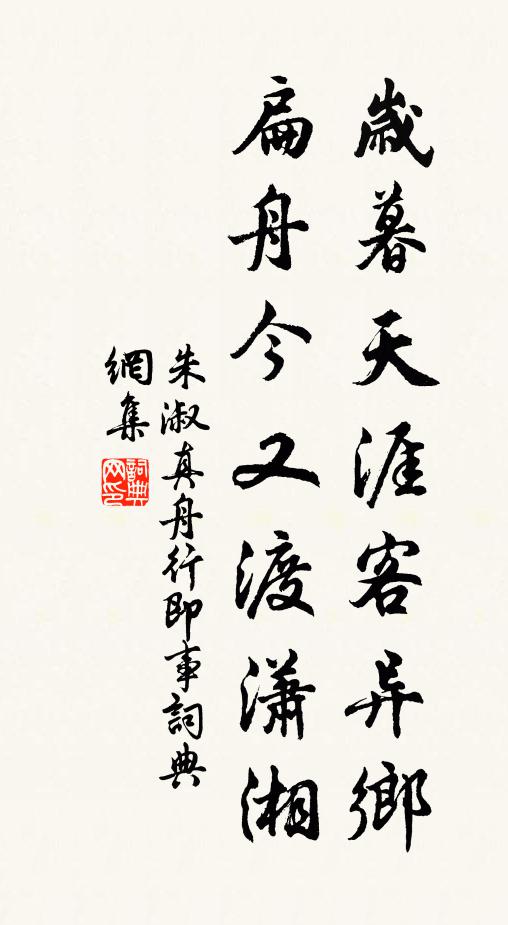 歲暮天涯客异鄉
扁舟今又渡瀟湘
朱淑真舟行即事詞典
網集
詞典
网印